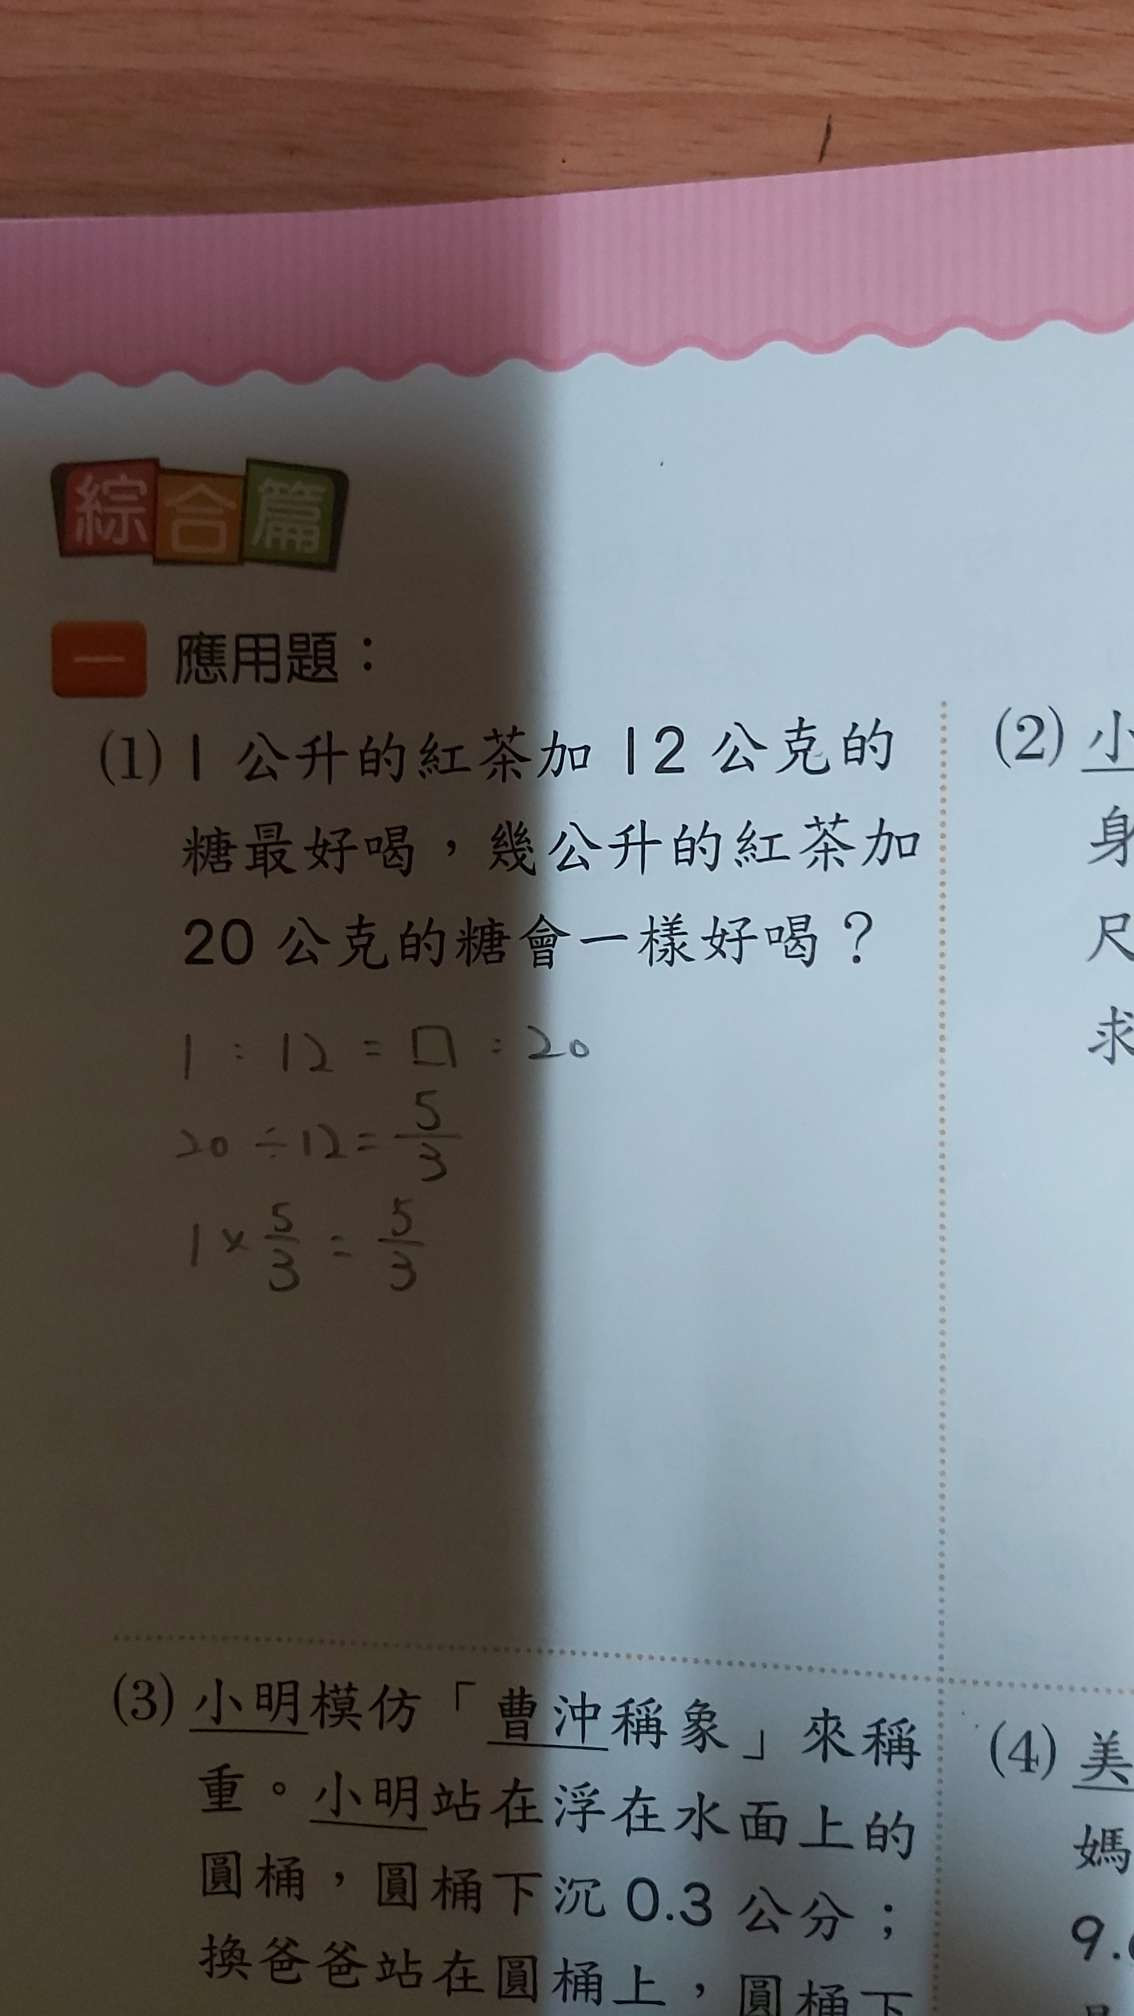 綜合篇
一 應用題：
(1) 1公升的紅茶加12公克的
糖最好喝，幾公升的紅茶加
20公克的糖會一樣好喝？
1 : 12 = □ : 20
20 ÷ 12 = 5/3
1 × 5/3 = 5/3
(2) 小
身
尺
求
(3) 小明模仿「曹沖稱象」來稱
重。小明站在浮在水面上的
圓桶，圓桶下沉0.3公分；
換爸爸站在圓桶上，圓桶下
(4) 美
媽
9.